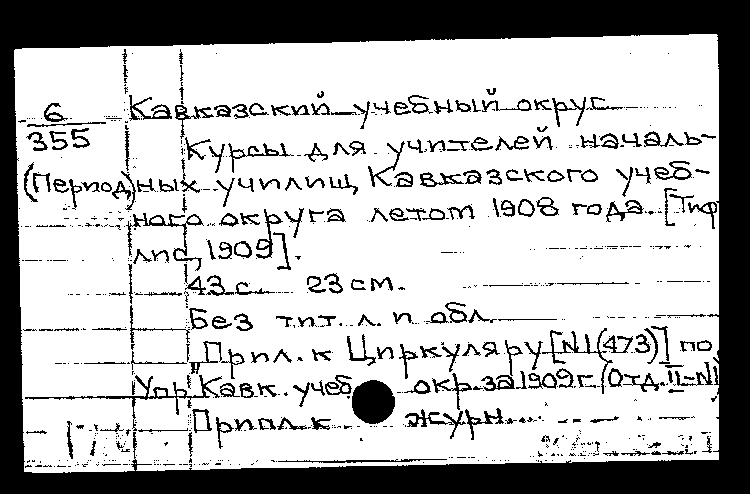 6 Кавказский учебный округ
355 Курсы для учителей началь-
(Период) ных училищ Кавказского учеб-
ного округа летом 1908 года. [Тиф
лис, 1909].
43 с. 23 см.
Без тит. л. и обл.
Прил. к Циркуляру [N1(473)] по
Упр. Кавк. учеб окр. за 1909 г. (Отд. II-N1)
Припл. к журн.